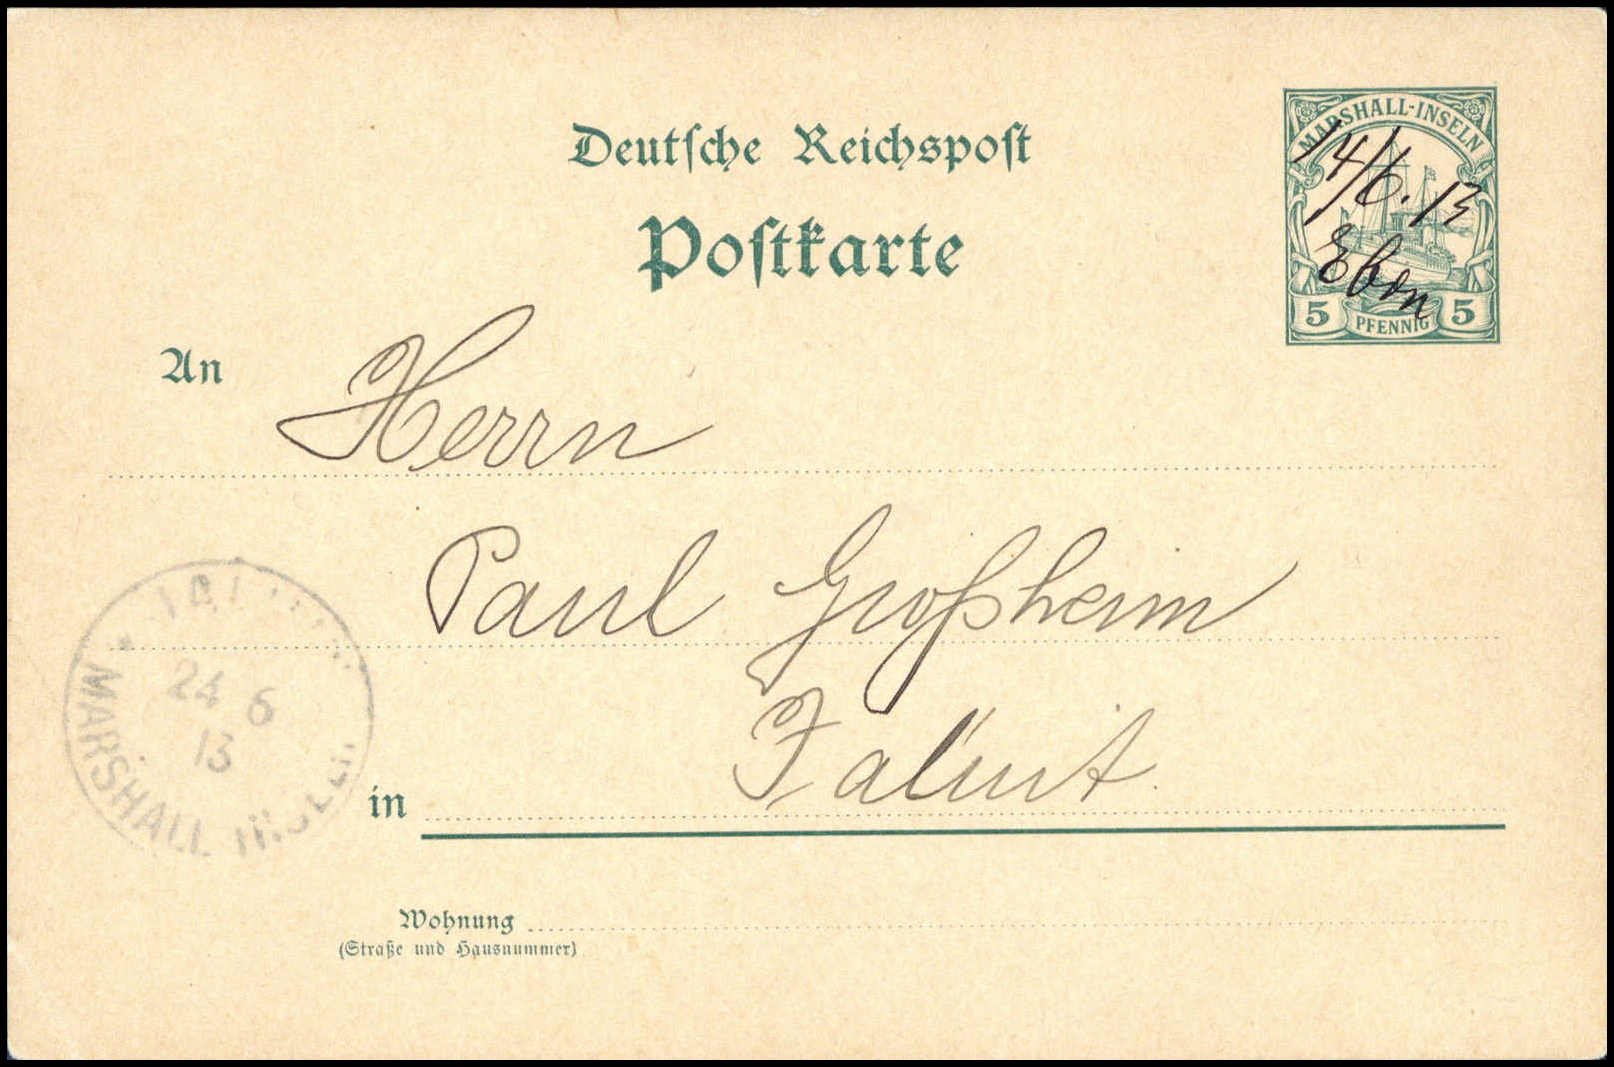 Deutsche Reichspost
Postkarte
MARSHALL-INSELN
14/6.13
Ebon
5 PFENNIG 5
An Herrn
Paul Großheim
24 6
13
MARSHALL INSELN
in Jaluit.
Wohnung
(Straße und Hausnummer)